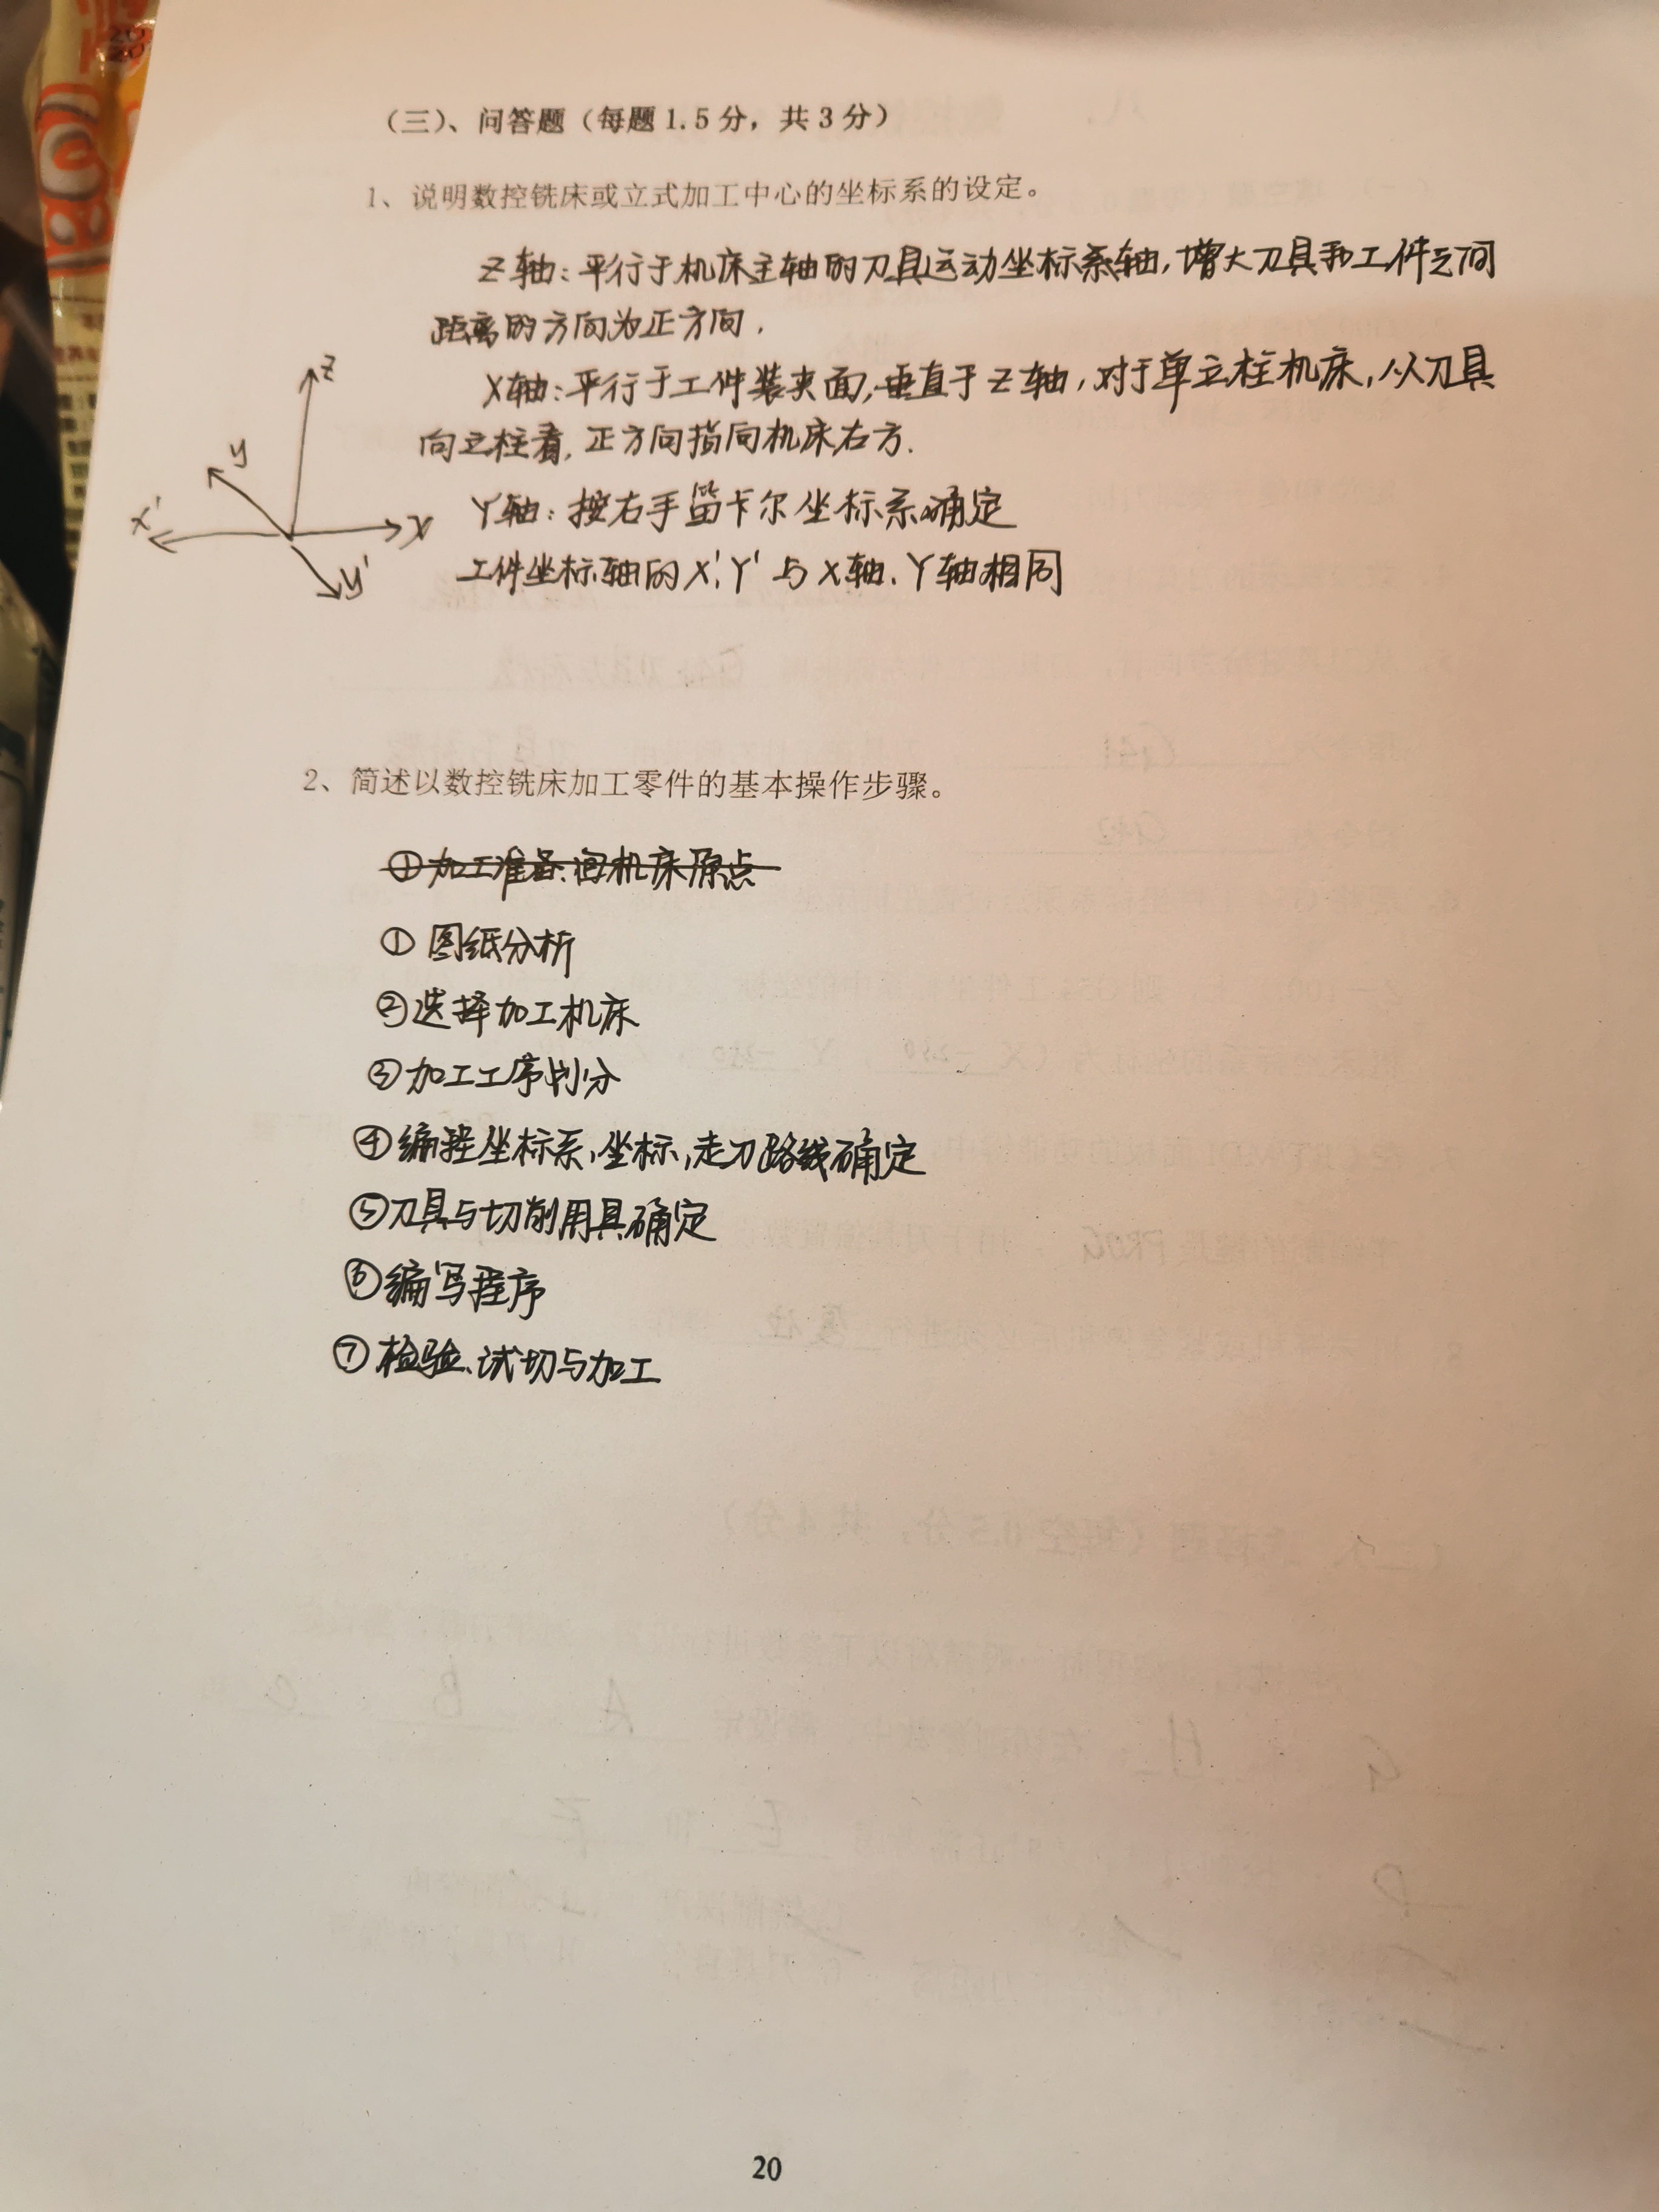 （三）、问答题（每题1.5分，共3分）
1、说明数控铣床或立式加工中心的坐标系的设定。
Z轴：平行于机床主轴的刀具运动坐标系轴，增大刀具和工件之间
距离的方向为正方向.
X轴：平行于工件装夹面，垂直于Z轴，对于单立柱机床，从刀具
向立柱看，正方向指向机床右方.
Y轴：按右手笛卡尔坐标系确定
工件坐标轴的X'、Y'与X轴、Y轴相同
Z
y
X'
X
y'
2、简述以数控铣床加工零件的基本操作步骤。
①加工准备、回机床原点
①图纸分析
②选择加工机床
③加工工序划分
④编程坐标系、坐标，走刀路线确定
⑤刀具与切削用具确定
⑥编写程序
⑦检验、试切与加工
20